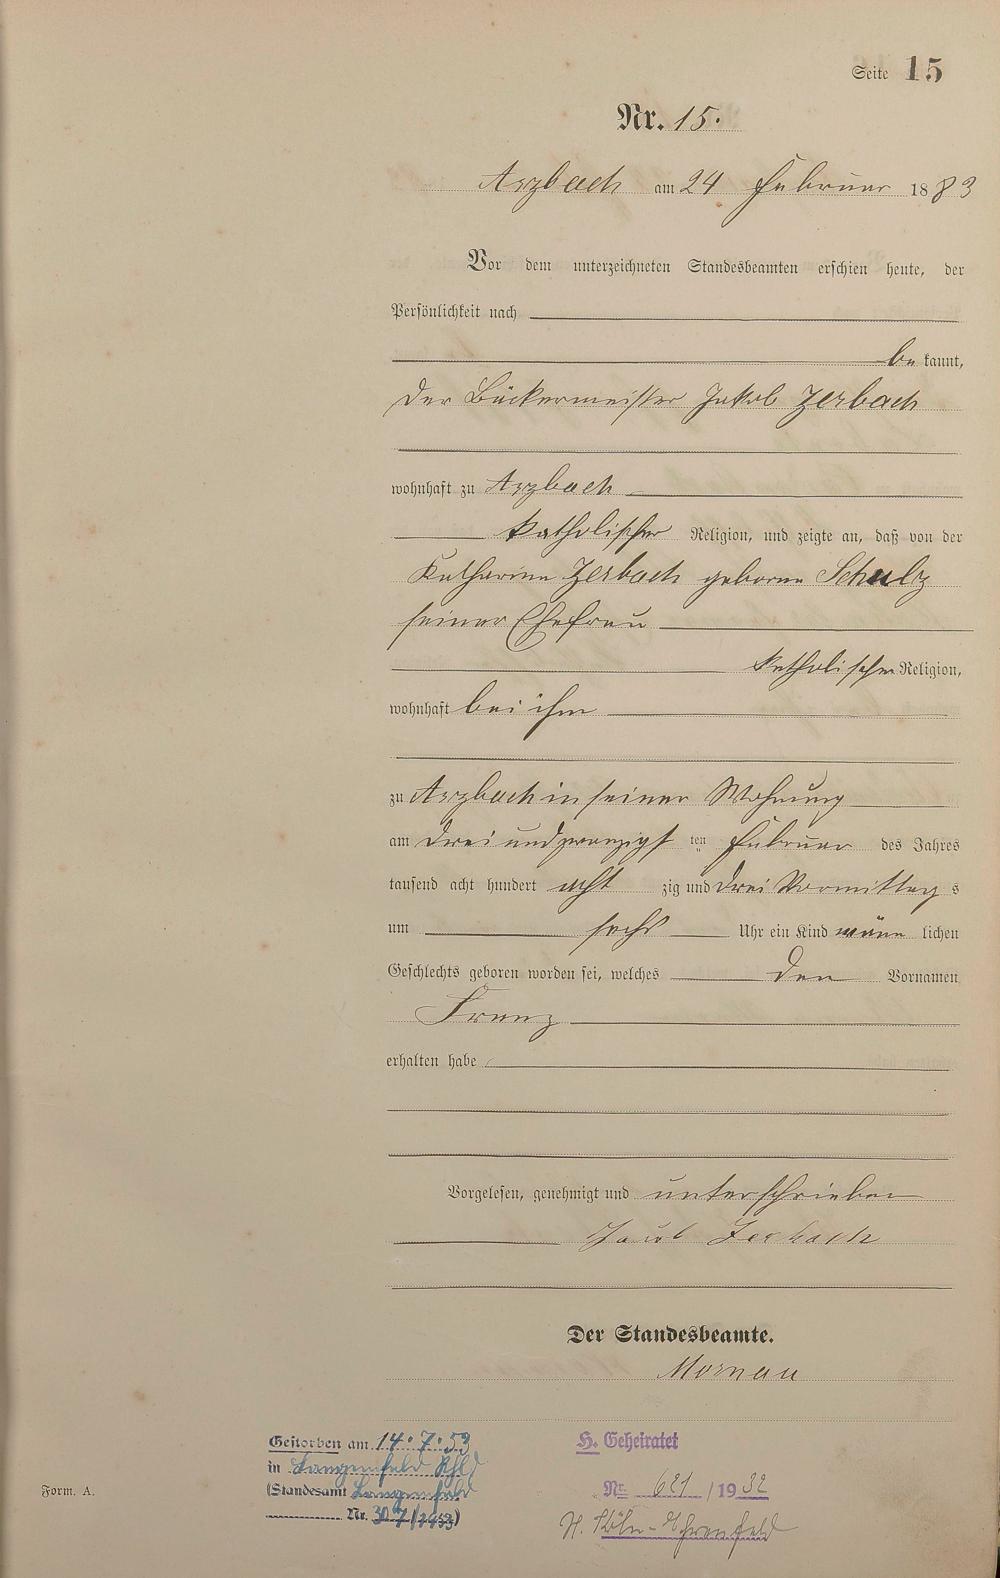 Seite 15
Nr. 15.
Arzbach am 24 Februar 1883
Vor dem unterzeichneten Standesbeamten erschien heute, der
Persönlichkeit nach
bekannt,
der Bäckermeister Jakob Zerbach
wohnhaft zu Arzbach
katholischer Religion, und zeigte an, daß von der
Katharina Zerbach geborne Schulz
seiner Ehefrau
katholischer Religion,
wohnhaft bei ihm
zu Arzbach in seiner Wohnung
am drei und zwanzigsten Februar des Jahres
tausend acht hundert achtzig und drei Vormittags
um sechs Uhr ein Kind männlichen
Geschlechts geboren worden sei, welches den Vornamen
Franz
erhalten habe
Vorgelesen, genehmigt und unterschrieben
Jacob Zerbach
Der Standesbeamte.
Mornau
Gestorben am 14.7.53
in Langenfeld Rhld
(Standesamt Langenfeld
Nr. 307/1953)
H. Geheiratet
Nr. 621/1932
Köln-Ehrenfeld
Form. A.